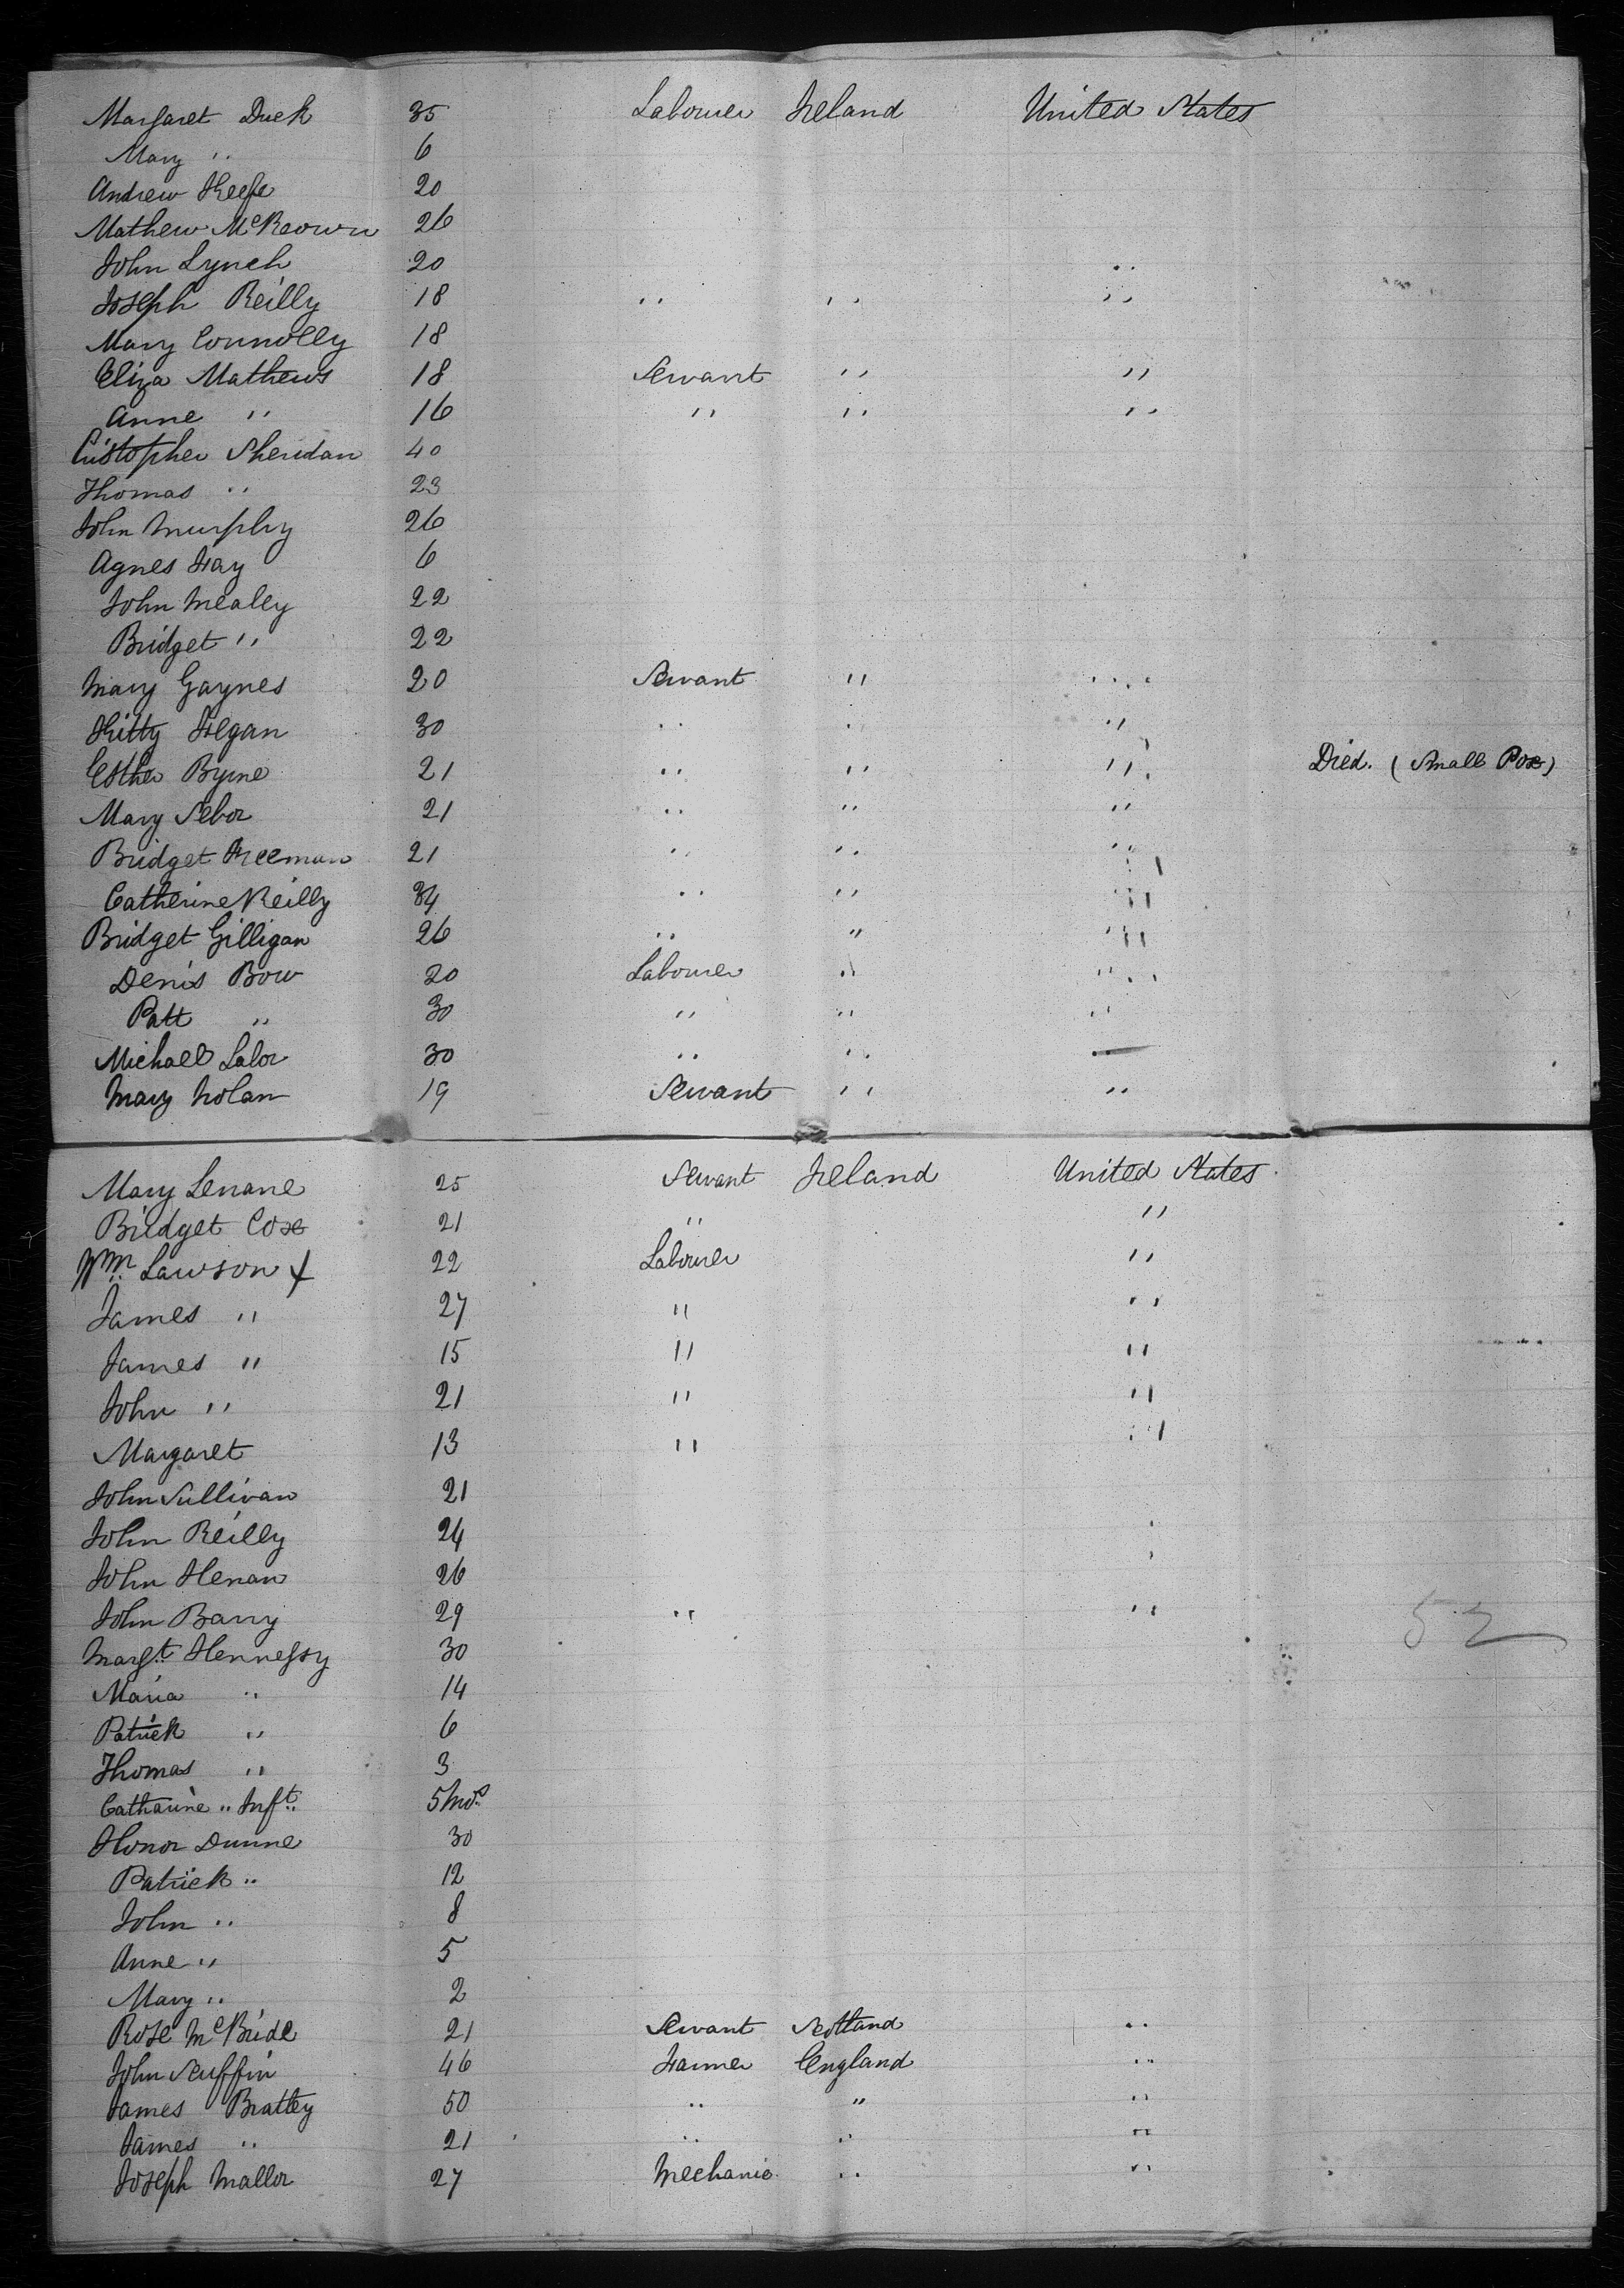 Margaret Duck 35 Labourer Ireland United States
Mary " 6
Andrew Keefe 20
Mathew McKeown 26
John Lynch 20 "
Joseph Reilly 18 " " "
Mary Connolly 18
Eliza Mathews 18 Servant " "
Anne " 16 " " "
Cristopher Sheridan 40
Thomas " 23
John Murphy 26
Agnes Fay 6
John Mealey 22
Bridget " 22
Mary Gaynes 20 Servant " "
Kitty Fegan 30 " " "
Esther Byrne 21 " " " Died. (Small Pox)
Mary Sebor 21 " " "
Bridget Freeman 21 " " "
Catherine Reilly 34 " " "
Bridget Gilligan 26 " " "
Denis Bow 20 Labourer " "
Patt " 30 " " "
Michael Lalor 30 " " "
Mary Nolan 19 Servant " "
Mary Lenane 25 Servant Ireland United States
Bridget Cox 21 " "
Wm Lawson 22 Labourer "
James " 27 " "
James " 15 " "
John " 21 " "
Margaret 13 " "
John Sullivan 21
John Reilly 24
John Henan 26
John Barry 29 " "
Margt Hennessy 30
Maria " 14
Patrick " 6
Thomas " 3
Catharine " Inft 5 Mos
Honor Dunne 30
Patrick " 12
John " 8
Anne " 5
Mary " 2
Rose McBride 21 Servant Scotland "
John Scuffin 46 Farmer England "
James Brattey 50 " " "
James " 21 " " "
Joseph Mallor 27 Mechanic " "
52